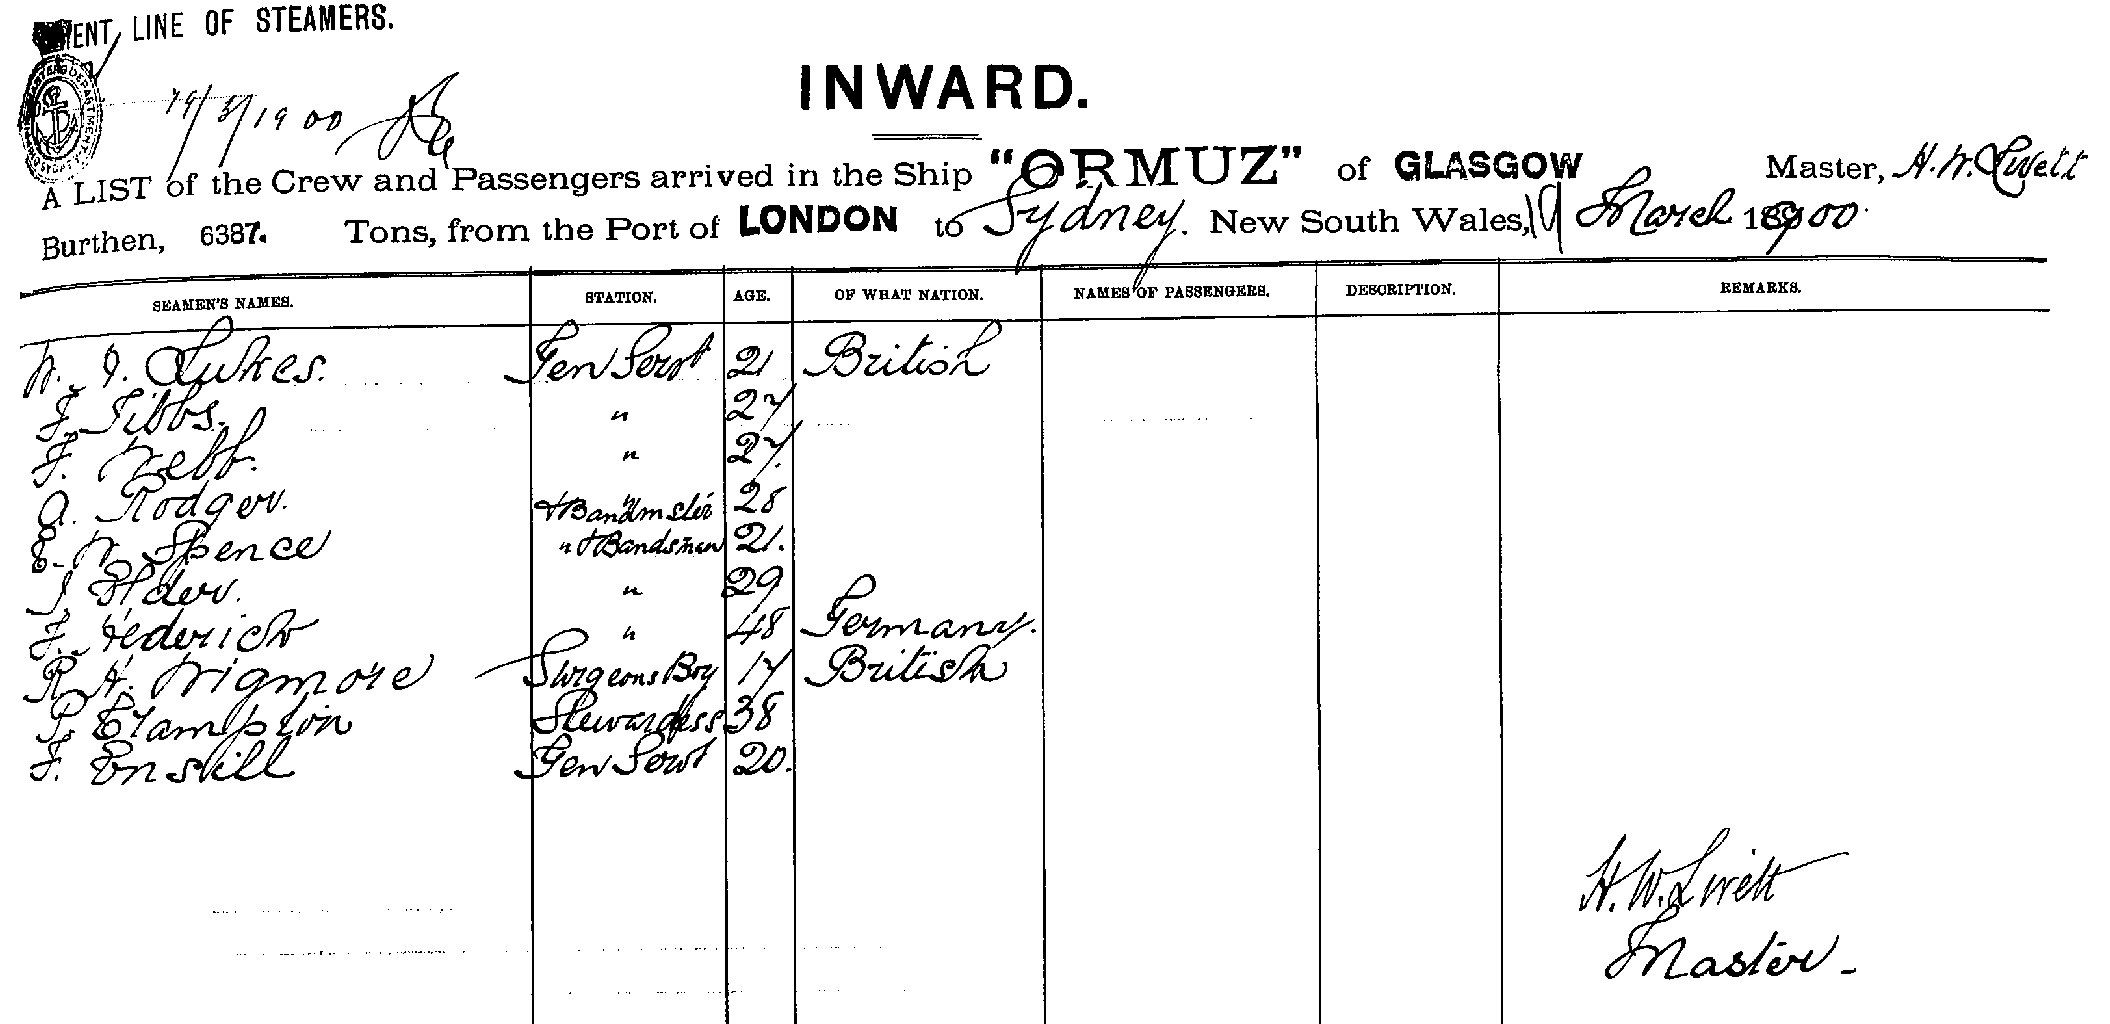 ENT LINE OF STEAMERS.
INWARD.
19/3/1900
A LIST of the Crew and Passengers arrived in the Ship "ORMUZ" of GLASGOW Master, H. W. Livett
Burthen, 6387. Tons, from the Port of LONDON to Sydney. New South Wales, 19 March 1900.
SEAMEN'S NAMES. STATION. AGE. OF WHAT NATION. NAMES OF PASSENGERS. DESCRIPTION. REMARKS.
W. J. Lukes. Gen Servt 21 British
F. Tibbs. " 27
F. Webb. " 27.
A. Rodger. " & Bandmster 28
E. W. Spence " & Bandsman 21.
J. Elder. " 29
F. Hederich " 48 Germany.
R. H. Wigmore Surgeons Boy 17 British
P. Crampton Stewardess 38
F. Enskill Gen Servt 20.
H. W. Livett
Master -